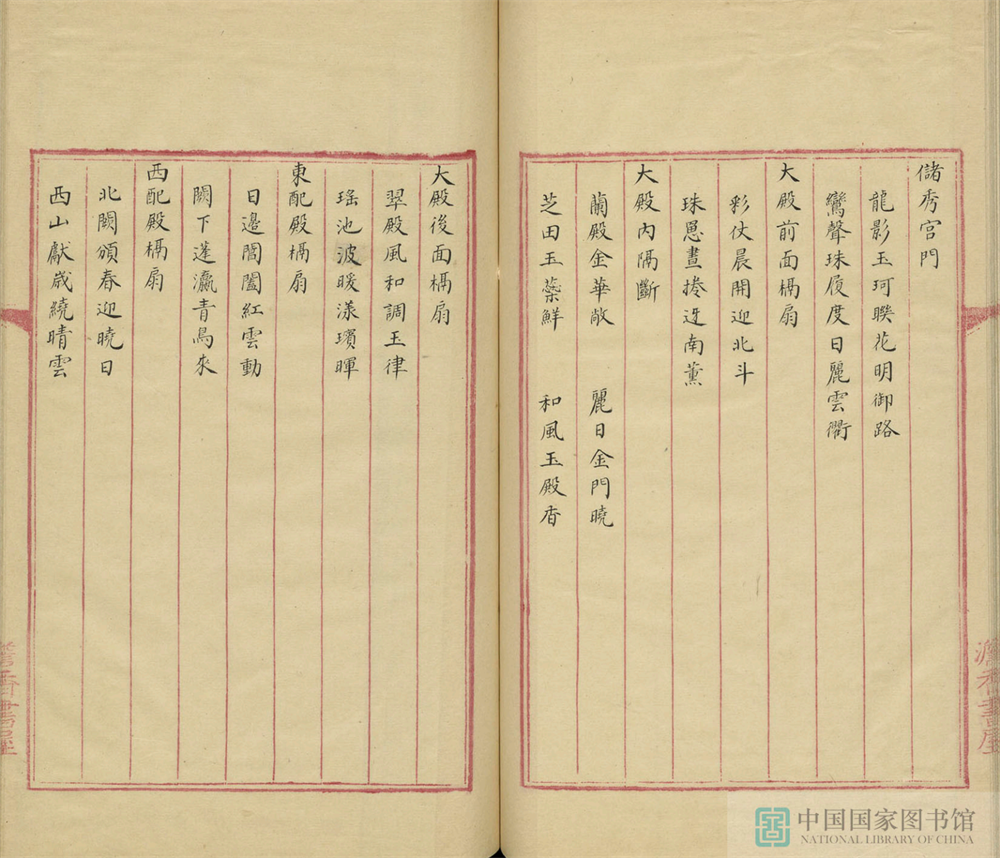 儲秀宮門
龍影玉珂聯花明御路
鸞聲珠履度日麗雲衢
大殿前面槅扇
彩仗晨開迎北斗
珠罳晝捲迓南薰
大殿內隔斷
蘭殿金華敞　麗日金門曉
芝田玉蘂鮮　和風玉殿香
大殿後面槅扇
翠殿風和調玉律
瑤池波暖漾璸暉
東配殿槅扇
日邊閶闔紅雲動
闕下蓬瀛青鳥來
西配殿槅扇
北闕頒春迎曉日
西山獻歲繞晴雲
澹香書屋
中国国家图书馆
NATIONAL LIBRARY OF CHINA